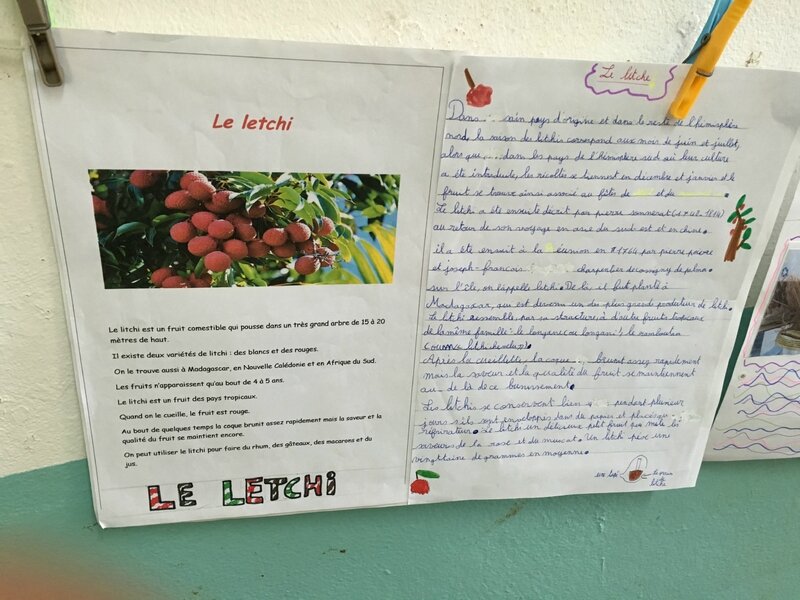 Le letchi
Le litchi est un fruit comestible qui pousse dans un très grand arbre de 15 à 20
mètres de haut.
Il existe deux variétés de litchi : des blancs et des rouges.
On le trouve aussi à Madagascar, en Nouvelle Calédonie et en Afrique du Sud.
Les fruits n'apparaissent qu'au bout de 4 à 5 ans.
Le litchi est un fruit des pays tropicaux.
Quand on le cueille, le fruit est rouge.
Au bout de quelques temps la coque brunit assez rapidement mais la saveur et la
qualité du fruit se maintient encore.
On peut utiliser le litchi pour faire du rhum, des gâteaux, des macarons et du
jus.
LE LETCHI
Le litche
Dans son pays d'origine et dans le reste de l'hémisphère
nord, la saison du lithi correspond aux mois de juin et juillet,
alors que dans les pays de l'hémisphère sud où leur culture
a été introduite, les récoltes se tiennent en décembre et janvier et le
fruit se trouve ainsi associé au fêtes de
Le litchi a été ensuite décrit par pierre sonnerat (1748-1814)
au retour de son voyage en asie du sud est et en chine.
il a été ensuit à la Réunion en 1764 par pierre poivre
et joseph-francois charpentier de cossigny de palma.
sur l'île, on l'appelle litchi. De la it fut planté à
Madagascar, qui est devenu un des plus grand producteur de litchi.
Le litchi ressemble par sa structure à d'autre fruits tropicaux
de la même famille : le longane ou longani, le ramboutan
Après la cueillette, la coque brunit assez rapidement
mais la saveur et la qualité du fruit se maintiennent
au de là de ce brunissement.
Les litchis se conservent bien pendent plusieur
jours s'ils sont enveloppés dans du papier et placés au
réfrigérateur. Le litchi un délicieux petit fruit que mêle les
saveurs de la rose et du muscat. Un litchi pèse une
vingttaine de grammes en moyenne.